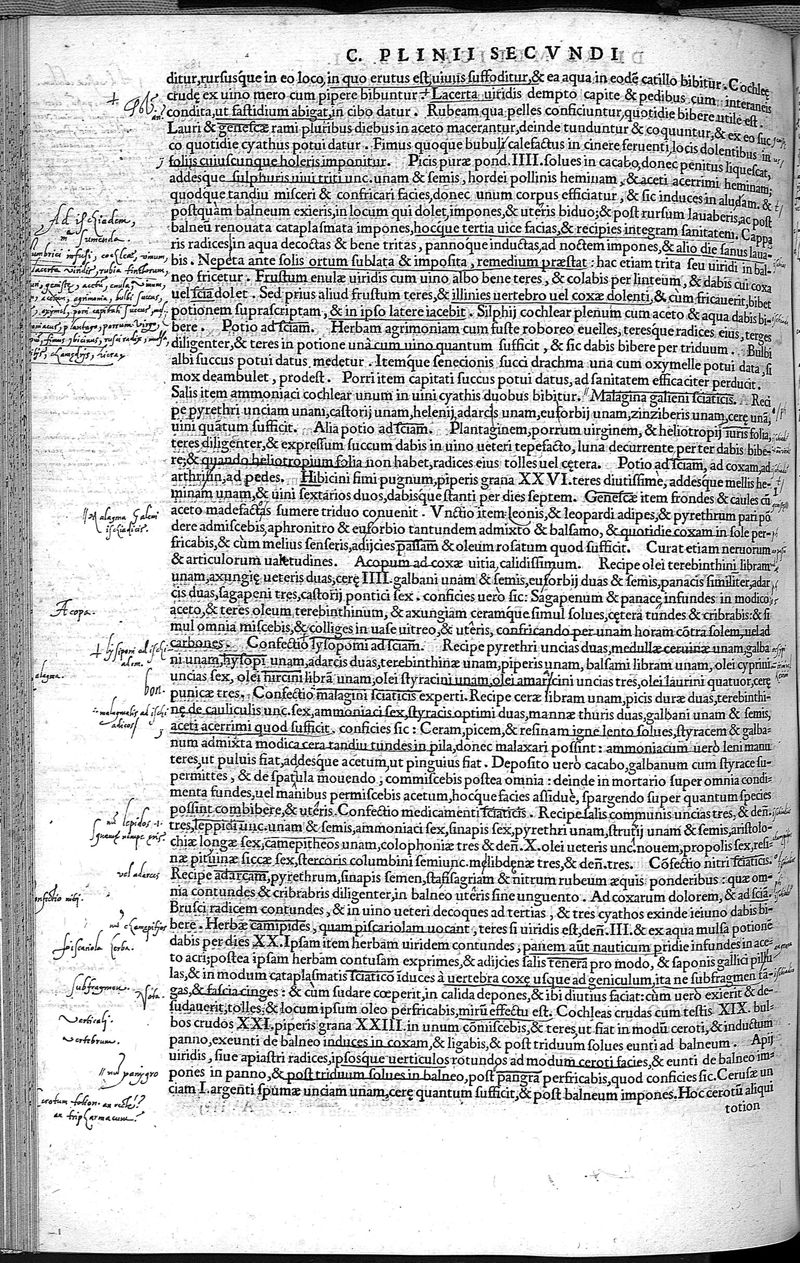 C. PLINII SECVNDI
ditur, rursusque in eo loco, in quo erutus est, uiuus suffoditur, & ea aqua in eodē catillo bibitur. Cochleę
crudę ex uino mero cum pipere bibuntur. Lacerta uiridis dempto capite & pedibus cum interaneis
condita, ut fastidium abigat, in cibo datur. Rubeam qua pelles conficiuntur, quotidie bibere utile est.
Lauri & genescæ rami pluribus diebus in aceto macerantur, deinde tunduntur & coquuntur, & ex eo suc
co quotidie cyathus potui datur. Fimus quoque bubuli calefactus in cinere feruenti, locis dolentibus in
folijs cuiuscunque holeris imponitur. Picis puræ pond. IIII. solues in cacabo, donec penitus liquescat,
addesque sulphuris uiui triti unc. unam & semis, hordei pollinis heminam, & aceti acerrimi heminam,
quodque tandiu misceri & confricari facies, donec unum corpus efficiatur, & sic induces in aludam, &
postquàm balneum exieris, in locum qui dolet, impones, & uteris biduo; & post rursum lauaberis, ac post
balneū renouata cataplasmata impones, hocque tertia uice facias, & recipies integram sanitatem. Cappa
ris radices in aqua decoctas & bene tritas, pannoque inductas, ad noctem impones, & alio die sanus laua-
bis. Nepeta ante solis ortum sublata & imposita, remedium præstat: hac etiam trita seu uiridi in bal-
neo fricetur. Frustum enulæ uiridis cum uino albo bene teres, & colabis per linteum, & dabis cui coxa
uel scia dolet. Sed prius aliud frustum teres, & illinies uertebro uel coxæ dolenti, & cum fricauerit, bibet
potionem suprascriptam, & in ipso latere iacebit. Silphij cochlear plenum cum aceto & aqua dabis bi-
bere. Potio ad sciam. Herbam agrimoniam cum fuste roboreo euelles, teresque radices eius, terges
diligenter, & teres in potione unà cum uino quantum sufficit, & sic dabis bibere per triduum. Bulbi
albi succus potui datus medetur. Itemque senecionis succi drachma una cum oxymelle potui data, si
mox deambulet, prodest. Porri item capitati succus potui datus, ad sanitatem efficaciter perducit.
Salis item ammoniaci cochlear unum in uini cyathis duobus bibitur. Malagma galieni sciaticis. Reci
pe pyrethri unciam unam, castorij unam, helenij, adarcis unam, euforbij unam, zinziberis unam, cerę unā,
uini quātum sufficit. Alia potio ad sciam. Plantaginem, porrum uirginem, & heliotropij iuris folia,
teres diligenter, & expressum succum dabis in uino ueteri tepefacto, luna decurrente, per ter dabis bibe-
re, & quando heliotropium folia non habet, radices eius tolles uel cętera. Potio ad sciam, ad coxam, ad
arthrisin, ad pedes. Hibicini fimi pugnum, piperis grana XXVI. teres diutissime, addesque mellis he-
minam unam, & uini sextarios duos, dabisque stanti per dies septem. Genescæ item frondes & caules cū
aceto madefactas sumere triduo conuenit. Vnctio item leonis, & leopardi adipes, & pyrethrum pari pō
dere admisceбis, aphronitro & euforbio tantundem admixto & balsamo, & quotidie coxam in sole per-
fricabis, & cùm melius senseris, adijcies passam & oleum rosatum quod sufficit. Curat etiam neruorum
& articulorum ualetudines. Acopum ad coxæ uitia, calidissimum. Recipe olei terebinthini libram
unam, axungię ueteris duas, cerę IIII. galbani unam & semis, euforbij duas & semis, panacis similiter, adar
cis duas, sagapeni tres, castorij pontici sex. conficies uero sic: Sagapenum & panacę infundes in modico
aceto, & teres oleum terebinthinum, & axungiam ceramque simul solues, cętera tundes & cribrabis: & si
mul omnia miscebis, & colliges in uase uitreo, & utêris, confricando per unam horam cōtra solem, uel ad
carbones. Confectio sysopomi ad sciam. Recipe pyrethri uncias duas, medullæ ceruinæ unam, galba
ni unam, hysopi unam, adarcis duas, terebinthinæ unam, piperis unam, balsami libram unam, olei cyprini
uncias sex, olei hircini librā unam, olei styracini unam, olei amarycini uncias tres, olei laurini quatuor, cerę
punicæ tres. Confectio malagini sciaticis experti. Recipe ceræ libram unam, picis duræ duas, terebinthi-
nę de cauliculis unc. sex, ammoniaci sex, styracis optimi duas, mannæ thuris duas, galbani unam & semis,
aceti acerrimi quod sufficit. conficies sic: Ceram, picem, & resinam igne lento solues, styracem & galba-
num admixta modica cera tandiu tundes in pila, donec malaxari possint: ammoniacum uerò leni manu
teres, ut puluis fiat, addesque acetum, ut pinguius fiat. Deposito uerò cacabo, galbanum cum styrace su-
permittes, & de spatula mouendo; commiscebis postea omnia: deinde in mortario super omnia condi-
menta fundes, uel manibus permiscebis acetum, hocque facies assiduè, spargendo super quantum species
possint combibere, & utêris. Confectio medicamenti sciaticis. Recipe salis communis uncias tres, & deñ.
tres, leppidi unc. unam & semis, ammoniaci sex, sinapis sex, pyrethri unam, strutij unam & semis, aristolo-
chiæ longæ sex, camepitheos unam, colophoniæ tres & deñ. X. olei ueteris unc. nouem, propolis sex, resi-
næ pituinæ siccæ sex, stercoris columbini semiunc. melibdenæ tres, & deñ. tres. Cōfectio nitri sciaticis.
Recipe adarcam, pyrethrum, sinapis semen, stafisagriam & nitrum rubeum æquis ponderibus: quæ om-
nia contundes & cribrabis diligenter, in balneo utêris sine unguento. Ad coxarum dolorem, & ad sciā.
Brusci radicem contundes, & in uino ueteri decoques ad tertias, & tres cyathos exinde ieiuno dabis bi-
bere. Herbæ camipides, quam piscariolam uocant, teres si uiridis est, deñ. III. & ex aqua mulsa potione
dabis per dies XX. Ipsam item herbam uiridem contundes, panem aūt nauticum pridie infundes in ace-
to acri; postea ipsam herbam contusam exprimes, & adijcies salis tenera pro modo, & saponis gallici pilu
las, & in modum cataplasmatis sciatico īduces à uertebra coxę usque ad geniculum, ita ne subfragmen tā-
gas, & fascia cinges: & cùm sudare cœperit, in calida depones, & ibi diutius faciat: cùm uerò exierit & de-
sudauerit, tolles, & locum ipsum oleo perfricabis, mirū effectu est. Cochleas crudas cum testis XIX. bul-
bos crudos XXI. piperis grana XXIII. in unum cōmiscebis, & teres, ut fiat in modū ceroti, & inductum
panno, exeunti de balneo induces in coxam, & ligabis, & post triduum solues eunti ad balneum. Apij
uiridis, siue apiastri radices, ipsosque uerticulos rotundos ad modum ceroti facies, & eunti de balneo im-
pones in panno, & post triduum solues in balneo, post pangra perfricabis, quod conficies sic. Cerusæ un
ciam I. argenti spumæ unciam unam, cerę quantum sufficit, & post balneum impones. Hoc cerotū aliqui
totion
Ad ischiadem,
sumenda.
Malagma Galeni
ischiadicis.
Acopa.
hysiponi ad ischi
adem.
bon.
malagmatis ad ischi
adicos
lepidos
vel adarces
piscariola herba.
subfragmen.
Verticuli.
vertebrum.
an tripharmacum?